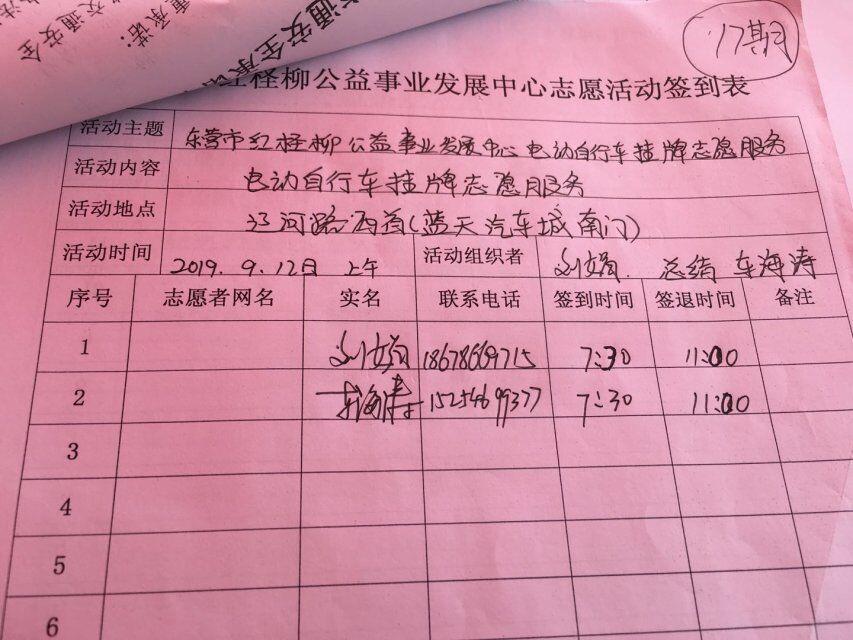 17期
红柽柳公益事业发展中心志愿活动签到表
活动主题 东营市红柽柳公益事业发展中心电动自行车挂牌志愿服务
活动内容 电动自行车挂牌志愿服务
活动地点 辽河路西首(蓝天汽车城南门)
活动时间 2019.9.12日 上午 活动组织者 刘娟 总结 车海涛
序号 志愿者网名 实名 联系电话 签到时间 签退时间 备注
1 刘娟 18678669715 7:30 11:00
2 车海涛 15254699377 7:30 11:00
3
4
5
6